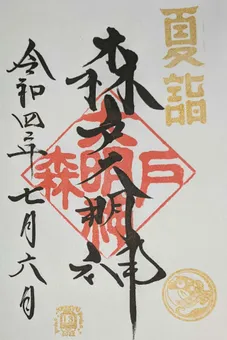 夏詣
森戸大明神
森戸
大明神
令和四年七月六日